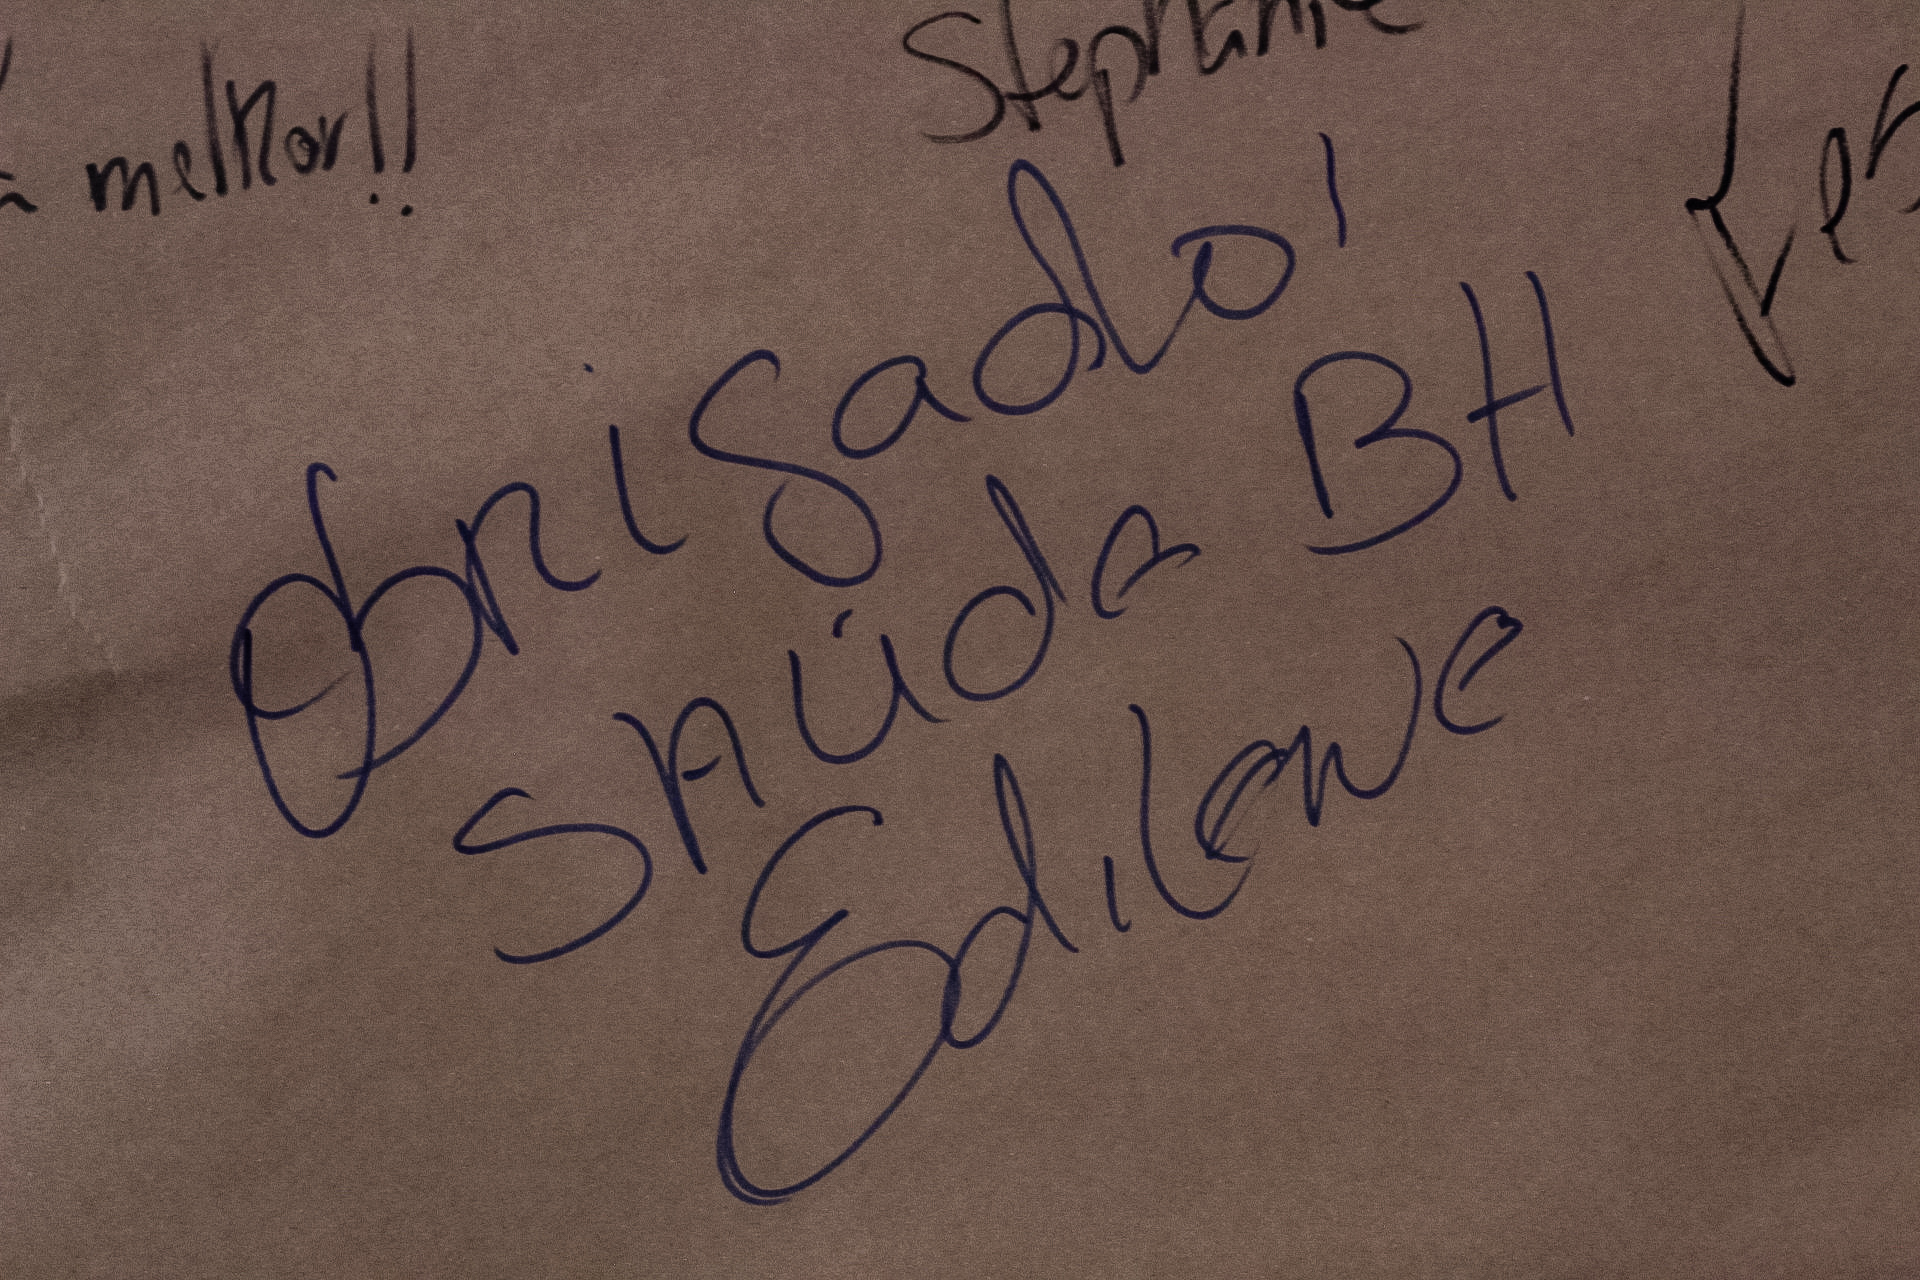 melhor!!
Stephanie
Obrigado!
Saúde BH
Edilene